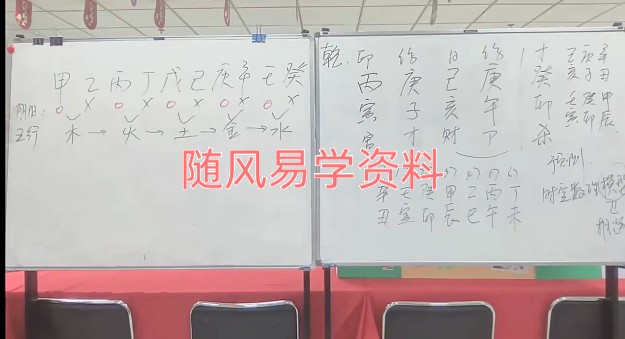 甲乙丙丁戊己庚辛壬癸
阴阳: O X O X O X O X O X
五行 木→火→土→金→水
随风易学资料
乾. 印 伤 日 伤 才
丙 庚 己 庚 癸
寅 子 亥 午 卯
官 才 财 卩 杀
己 庚 辛
亥 子 丑
壬 癸 甲
寅 卯 辰
预测
时空
辛 壬 癸 甲 乙 丙 丁
丑 寅 卯 辰 巳 午 未